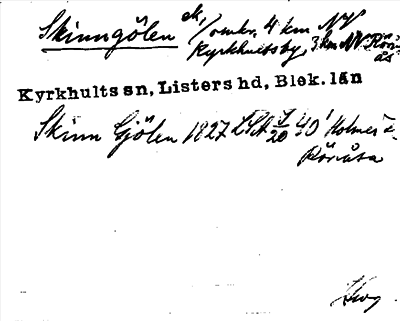 Skinngölen 4 km NV
Kyrkhultsby, 3 km NV Rön-
ås
Kyrkhults sn, Listers hd, Blek. län
Skinn Gjölen 1827 LSA 40' Holmen
Rönåsa